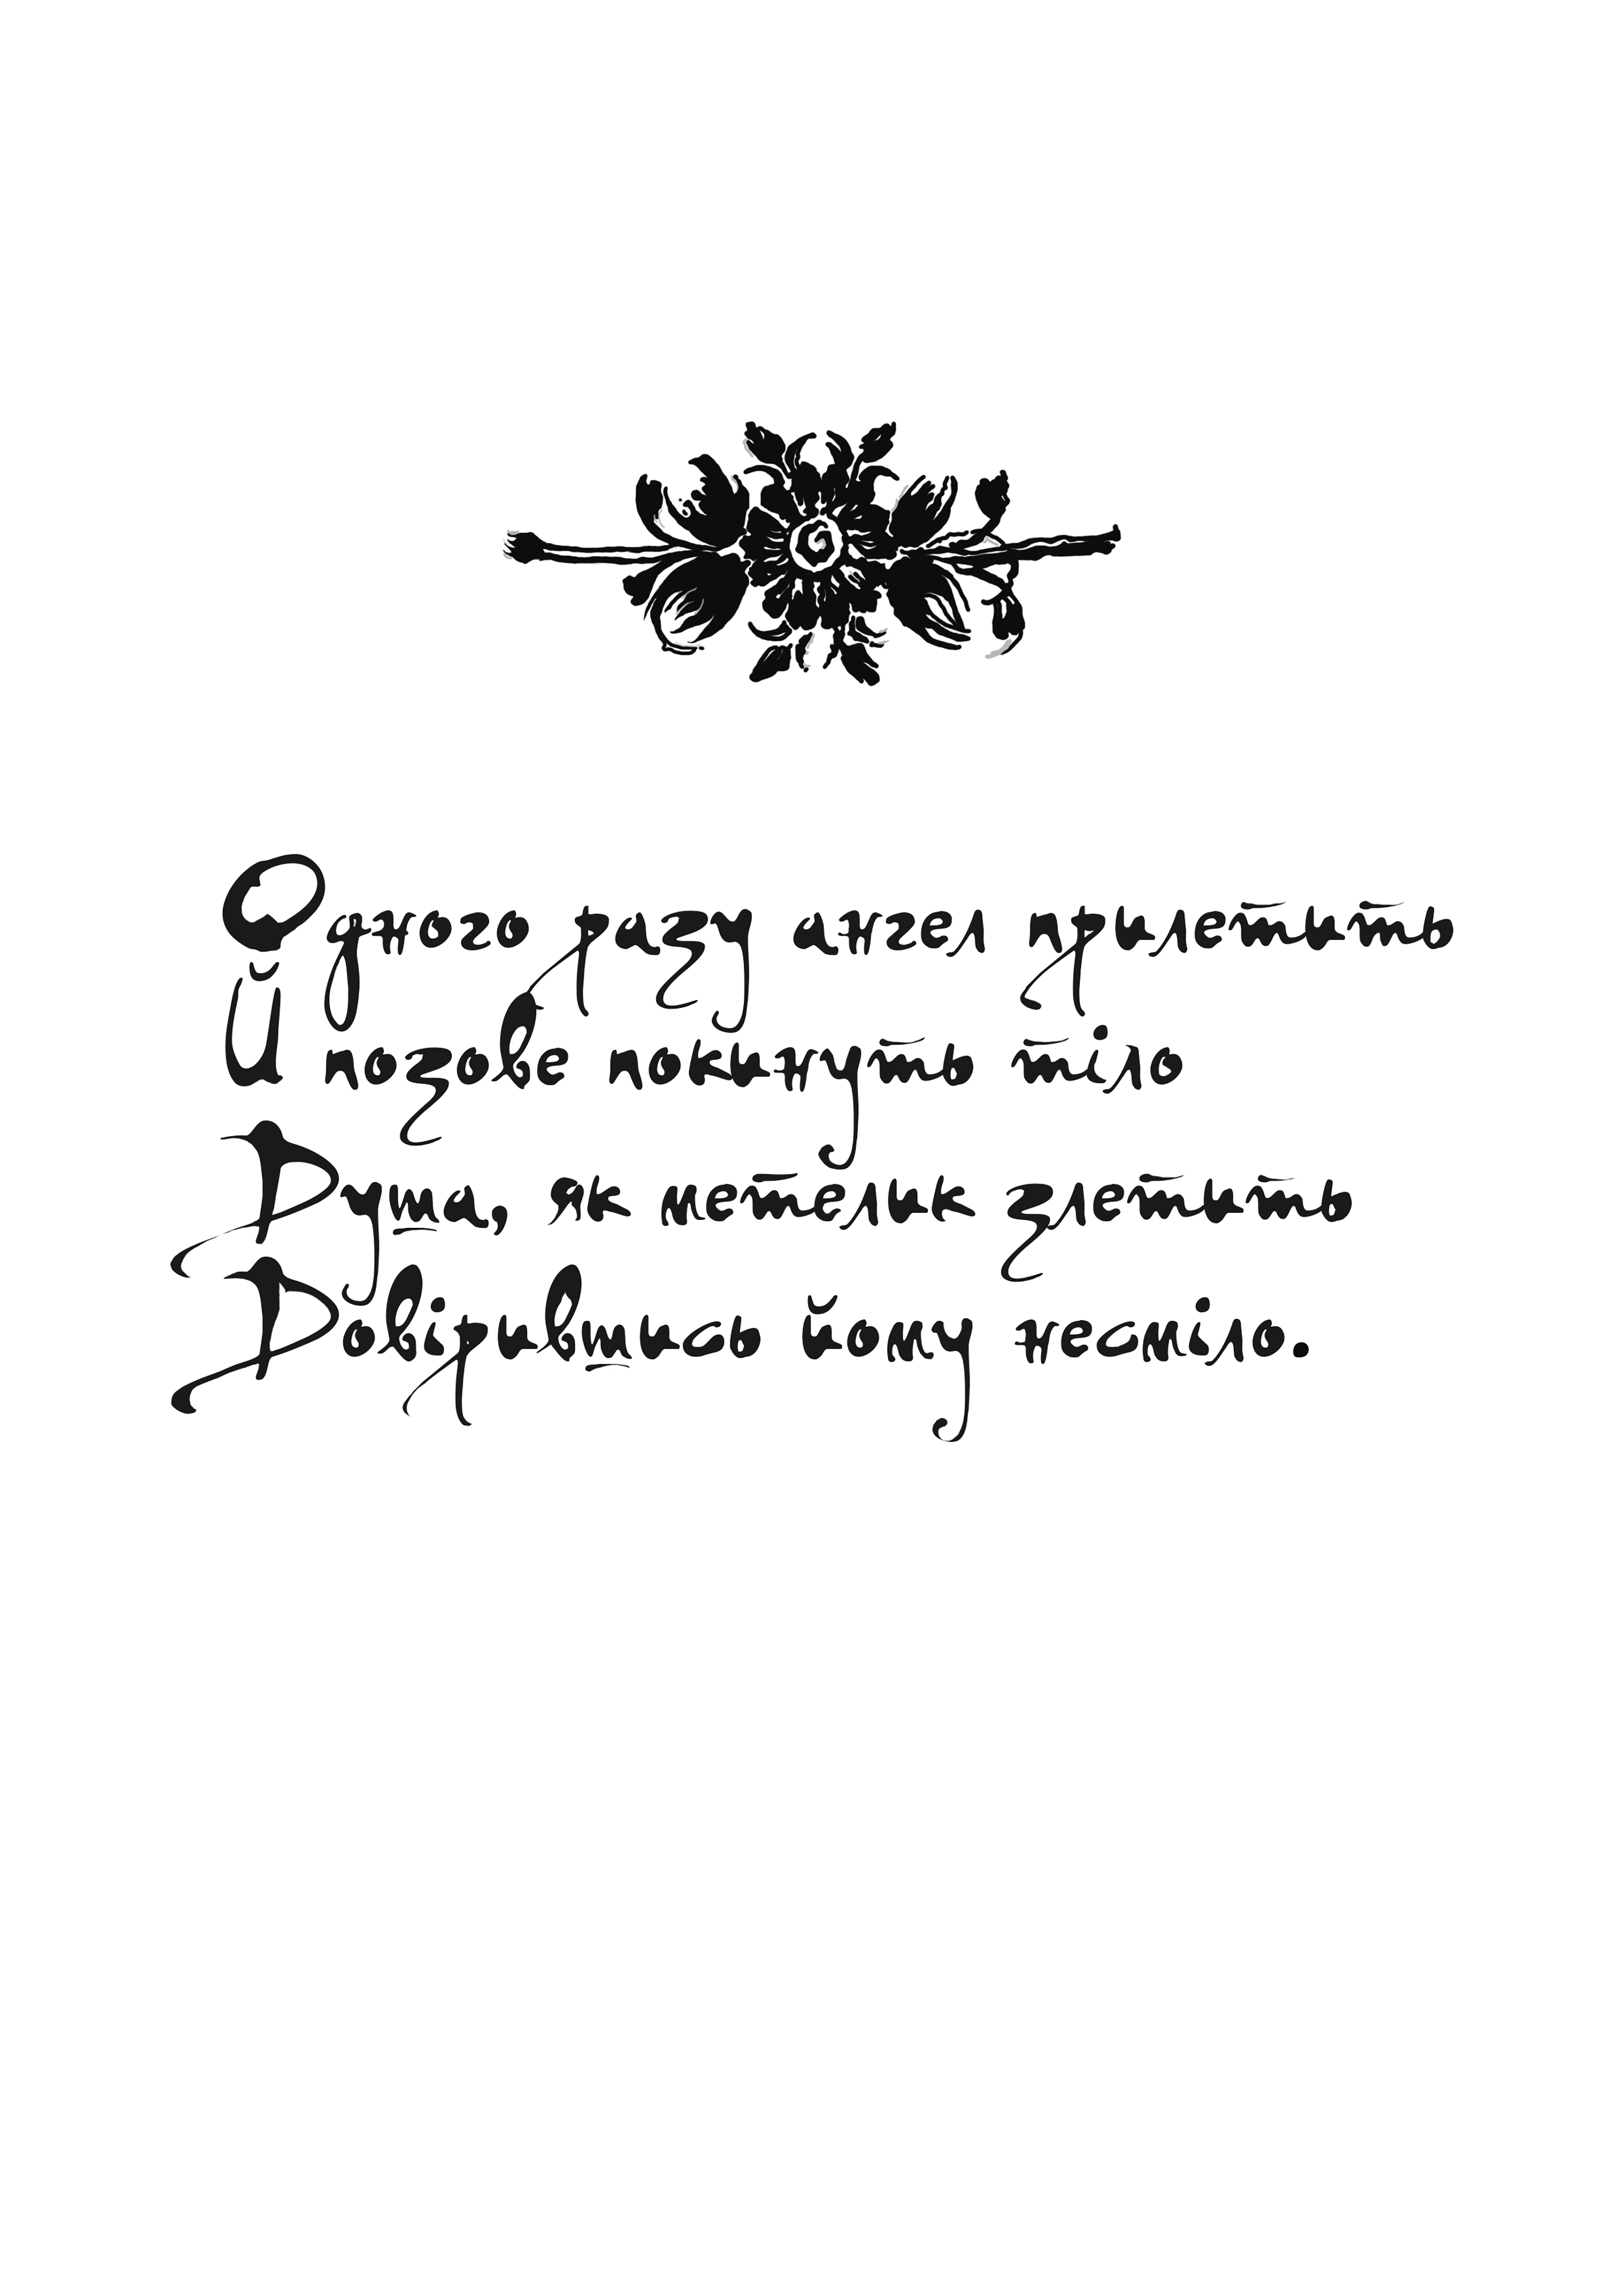 Одного разу ангел прилетить
Й позове покинуть тіло
Душа, як метелик злетить
Довірившись йому неспіло.